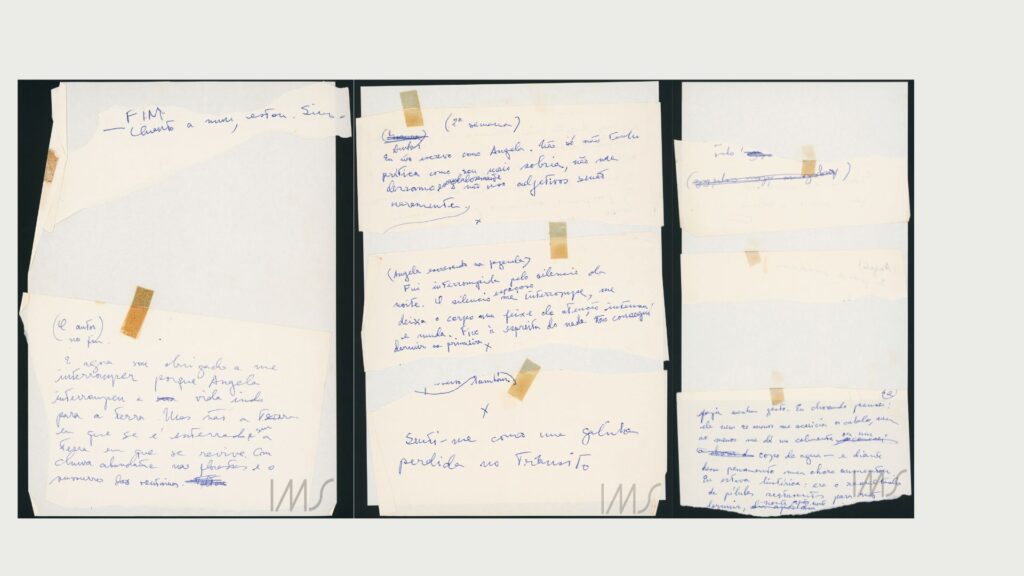 FIM
— Quanto a mim, estou. Sim.
(O autor)
no fim.
E agora sou obrigado a me
interromper porque Angela
interrompeu a vida indo
para a terra. Mas não a terra
em que se é enterrado e sim a
terra em que se revive. Com
chuva abundante nas florestas e o
sussurro das ventanias.
IMS
(2ª semana)
Autor
Eu não escrevo como Angela. Não só não tenho
prática como sou mais sóbrio, não me
derramo e não uso adjetivos senão
raramente.
x
(Angela escrevendo na fazenda)
Fui interrompida pelo silencio da
noite. O silencio espaçoso me interrompe, me
deixa o corpo num feixe de atenção intensa
e muda. Fico à espreita do nada. Não consegui
dormir na primeira
x
x
Senti-me como uma galinha
perdida no Trânsito
IMS
tudo
nenhum gesto. Eu chorando
ele nem ao menos me acaricia o cabelo, nem
ao menos me dá um calmante ou um
copo de agua — e diante
desse pensamento meu choro aumentou.
Eu estava histérica: era o
de pilulas para
dormir,
IMS